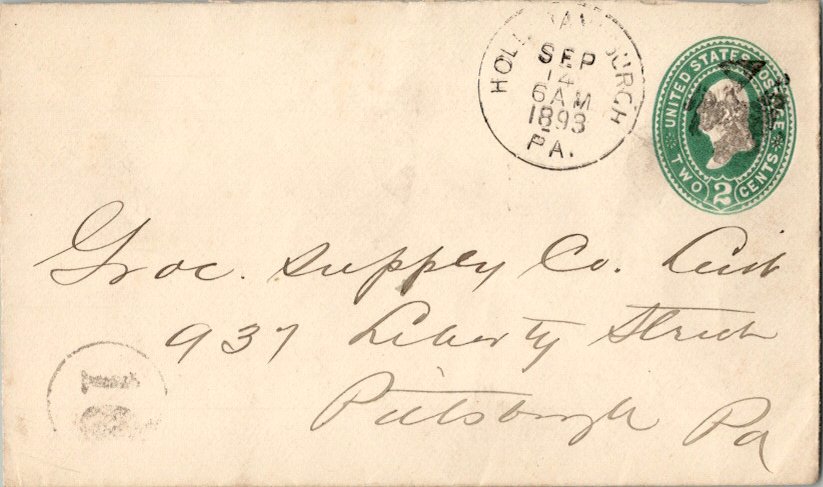 HOLLIDAYSBURGH
SEP
14
6 AM
1893
PA.
UNITED STATES POSTAGE
TWO 2 CENTS
Groc. Supply Co.
937 Liberty Street
Pittsburgh Pa